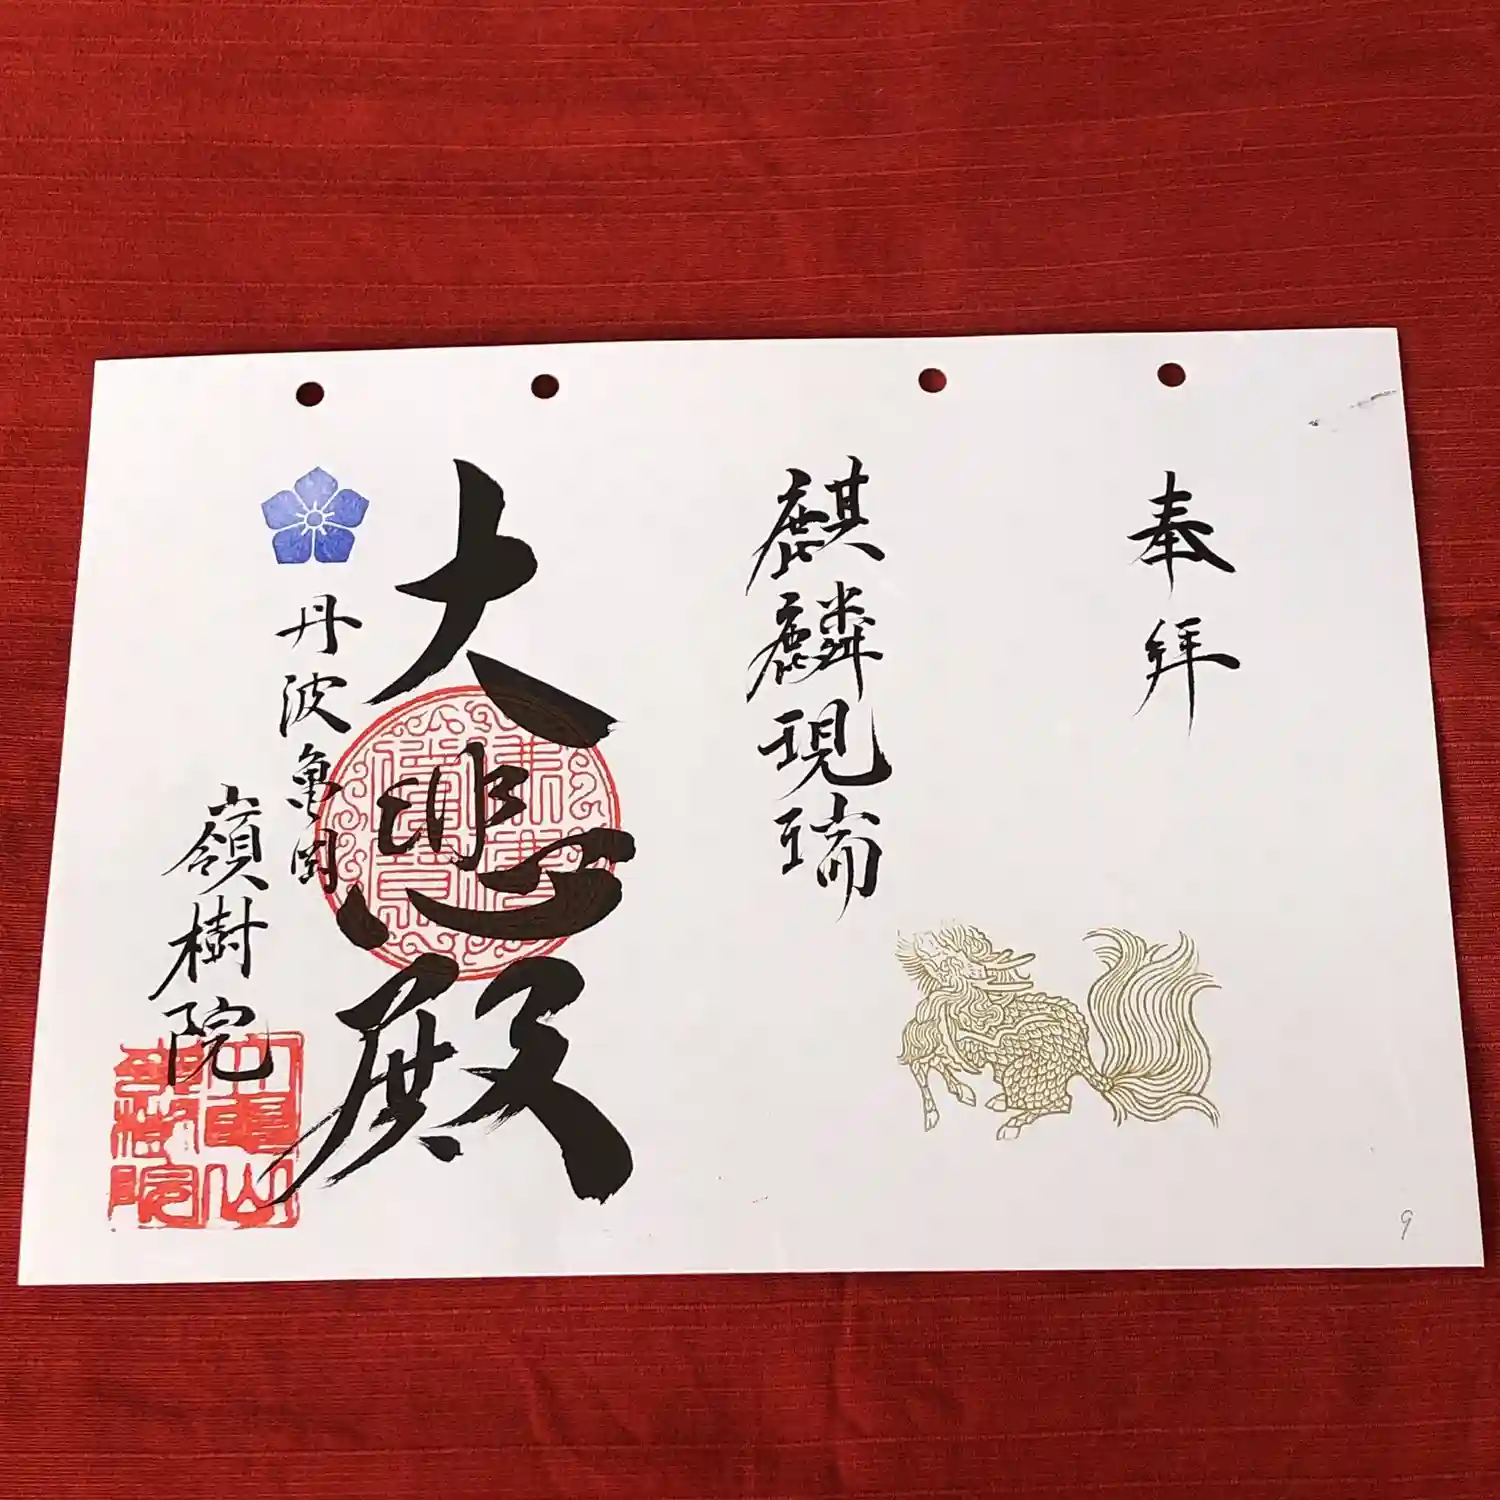 奉拝
麒麟現瑞
大悲殿
丹波亀岡
嶺樹院
9